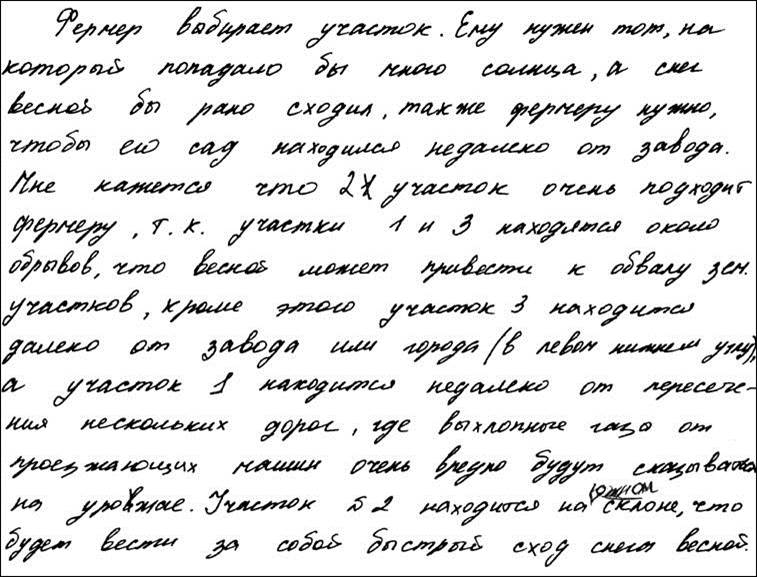 Фермер выбирает участок. Ему нужен тот, на
который попадало бы много солнца, а снег
весной бы рано сходил, также фермеру нужно,
чтобы его сад находился недалеко от завода.
Мне кажется что 2й участок очень подходит
фермеру, т.к. участки 1 и 3 находятся около
обрывов, что весной может привести к обвалу зем.
участков, кроме этого участок 3 находится
далеко от завода или города (в левом нижнем углу),
а участок 1 находится недалеко от пересече-
ния нескольких дорог, где выхлопные газы от
проезжающих машин очень вредно будут сказываться
на урожае. Участок 2 находится на южном склоне, что
будет вести за собой быстрый сход снега весной.